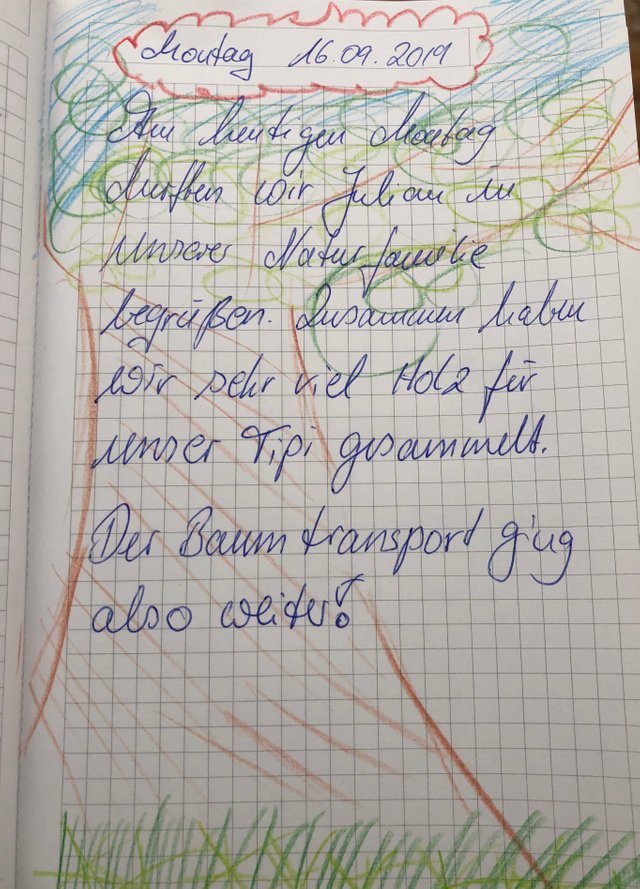 Montag 16.09.2019
Am heutigen Montag
durften wir Julian in
unserer Naturfamilie
begrüßen. Zusammen haben
wir sehr viel Holz für
unser Tipi gesammelt.
Der Baumtransport ging
also weiter!